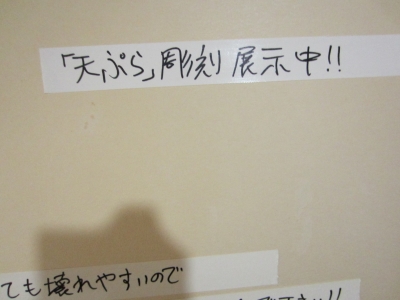 「天ぷら」彫刻展示中!!
ても壊れやすいので